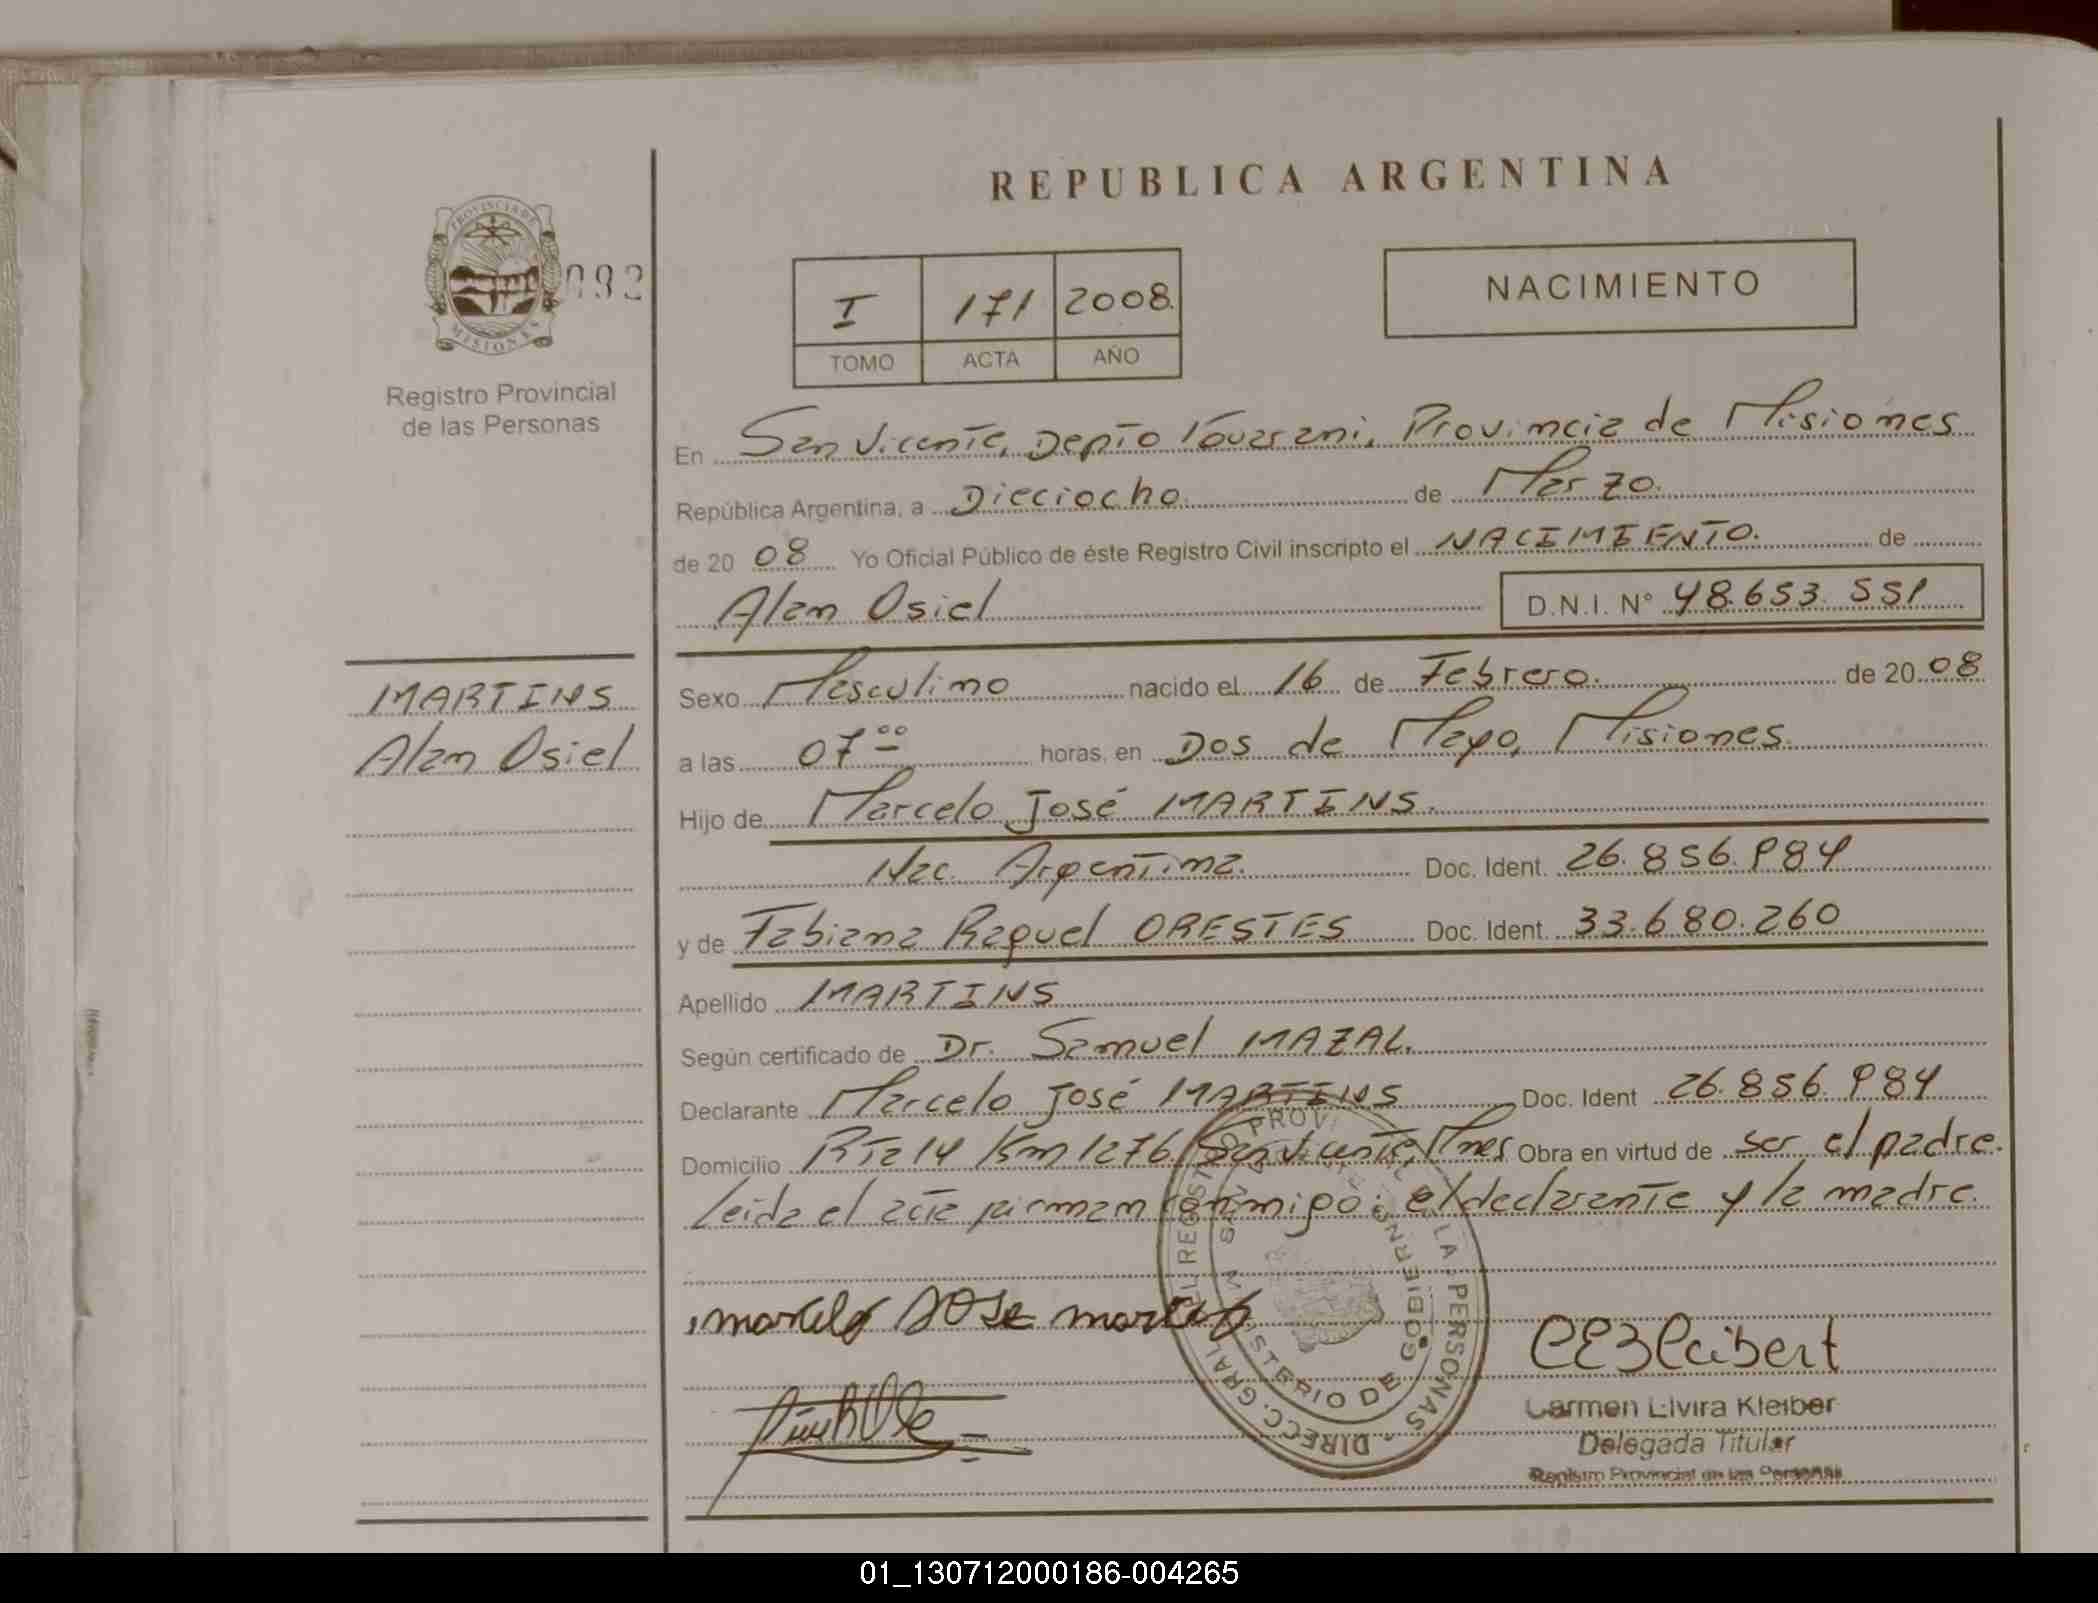 REPUBLICA ARGENTINA
PROVINCIA DE
MISIONES
092
Registro Provincial
de las Personas
I 171 2008.
TOMO ACTA AÑO
NACIMIENTO
En San Vicente, Depto Guarani, Provincia de Misiones
República Argentina, a Dieciocho. de Marzo.
de 20 08 Yo Oficial Público de éste Registro Civil inscripto el NACIMIENTO. de
Alan Osiel D.N.I. N° 48.653.551
MARTINS
Alan Osiel
Sexo Masculino nacido el 16 de Febrero. de 20 08
a las 07 00 horas, en Dos de Mayo, Misiones.
Hijo de Marcelo José MARTINS.
Nac. Argentina. Doc. Ident. 26.856.984
y de Fabiana Raquel ORESTES Doc. Ident. 33.680.260
Apellido MARTINS
Según certificado de Dr. Samuel MAZAL.
Declarante Marcelo José MARTINS Doc. Ident 26.856.984
Domicilio Rta 14 Km 1276 San Vicente, Mnes Obra en virtud de ser el padre.
Leida el acta firman conmigo: el declarante y la madre.
marcelo JOSE martins
Carmen Elvira Kleiber
Delegada Titular
Registro Provincial de las Personas
DIRECC. GRAL. DEL REGISTRO PROV. LA PERSONAS
MINISTERIO DE GOBIERNO
01_130712000186-004265